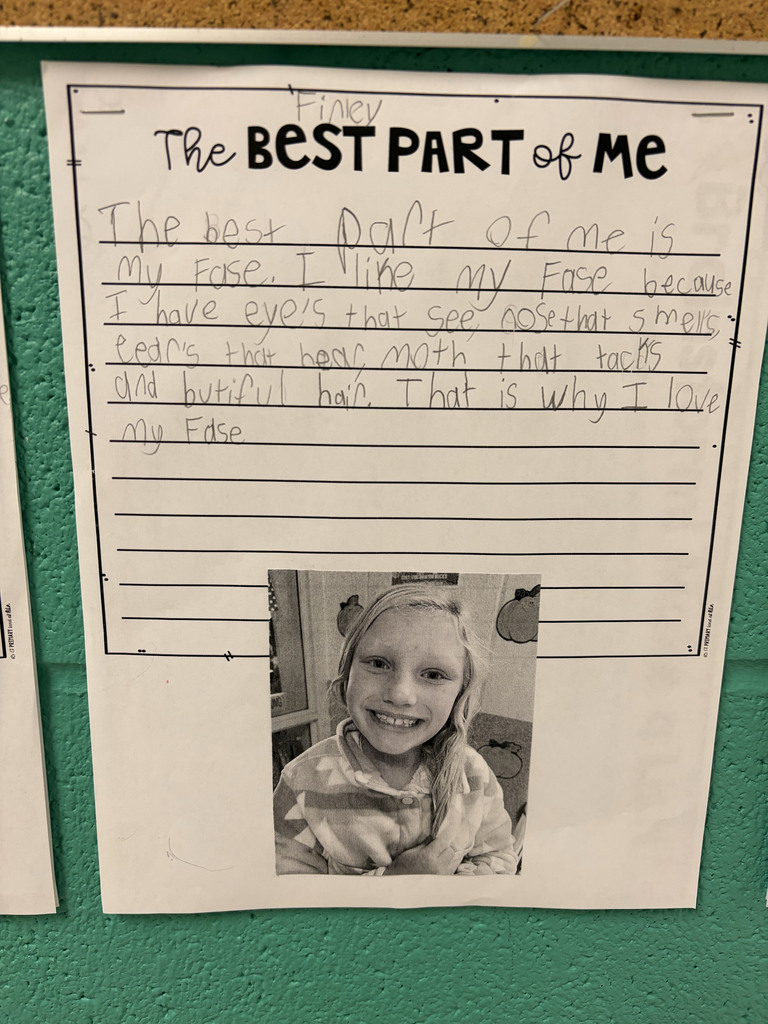 Finley
The BEST PART of ME
The best part of me is
My Fase. I like my Fase because
I have eye's that see, nose that smells,
eear's that hear, moth that tacks
and butiful hair. That is why I love
my Fase